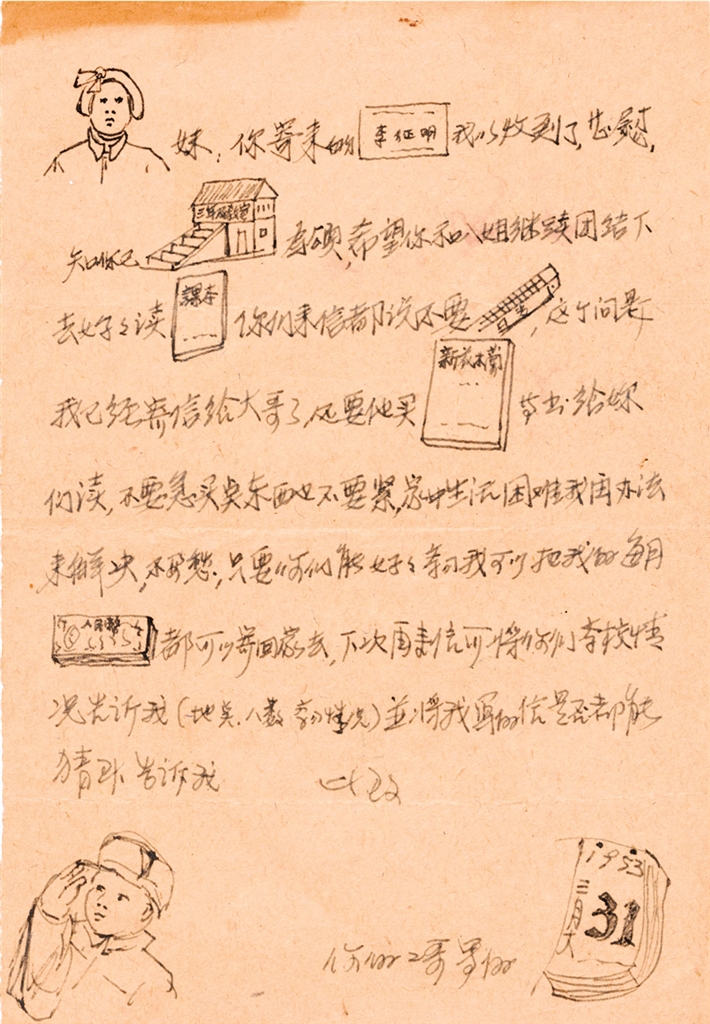 妹：你寄来的 李征明 我以收到了，甚慰，
知你已 三年级教室 希望你和八姐继续团结下
去好好读 課本 你们来信都说不要，这个问题
我已经寄信给大哥了，还要他买 新花木兰 等书给你
们读，不要急买桌东西也不要紧，家中生活困难我再办法
来解决，不要愁，只要你们能好好学习我可以把我的每月
人民幣 都可以寄回家去，下次再来信可将你们学校情
况告诉我（地点、人数、学习情况）並将我写的信是否都能
猜 告诉我 此致
你的二哥
1953
三月大
31